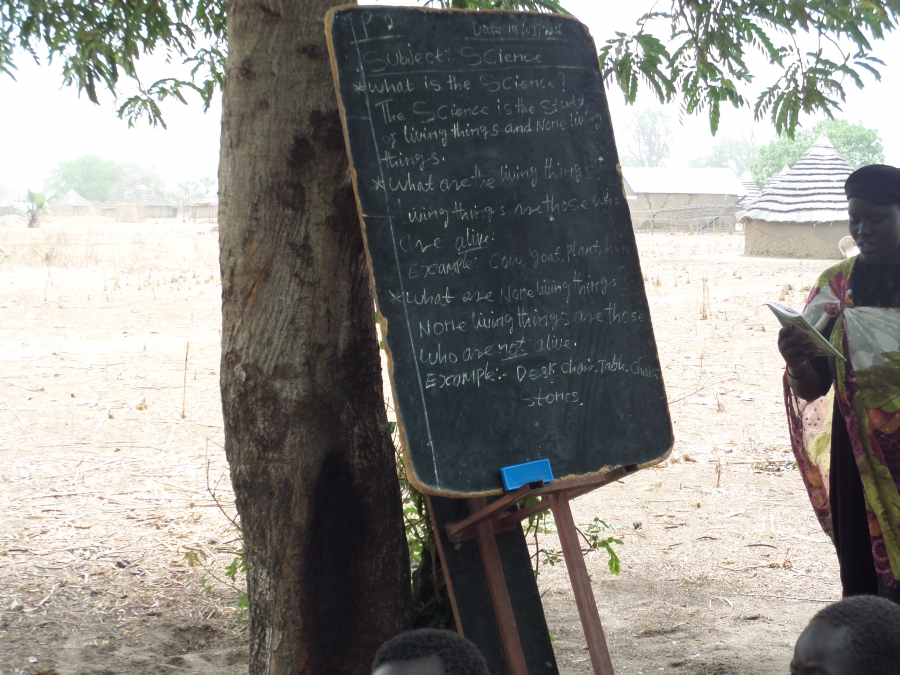 P2
Date
Subject: Science
* what is the science?
The Science is the Study
of living things and None living
things.
* What are the living things
Living things are those who
are alive.
Example: Cow, goat, plant,
* What are None living things?
None living things are those
who are not alive.
Example:- Desk Chair, Table,
Stones.